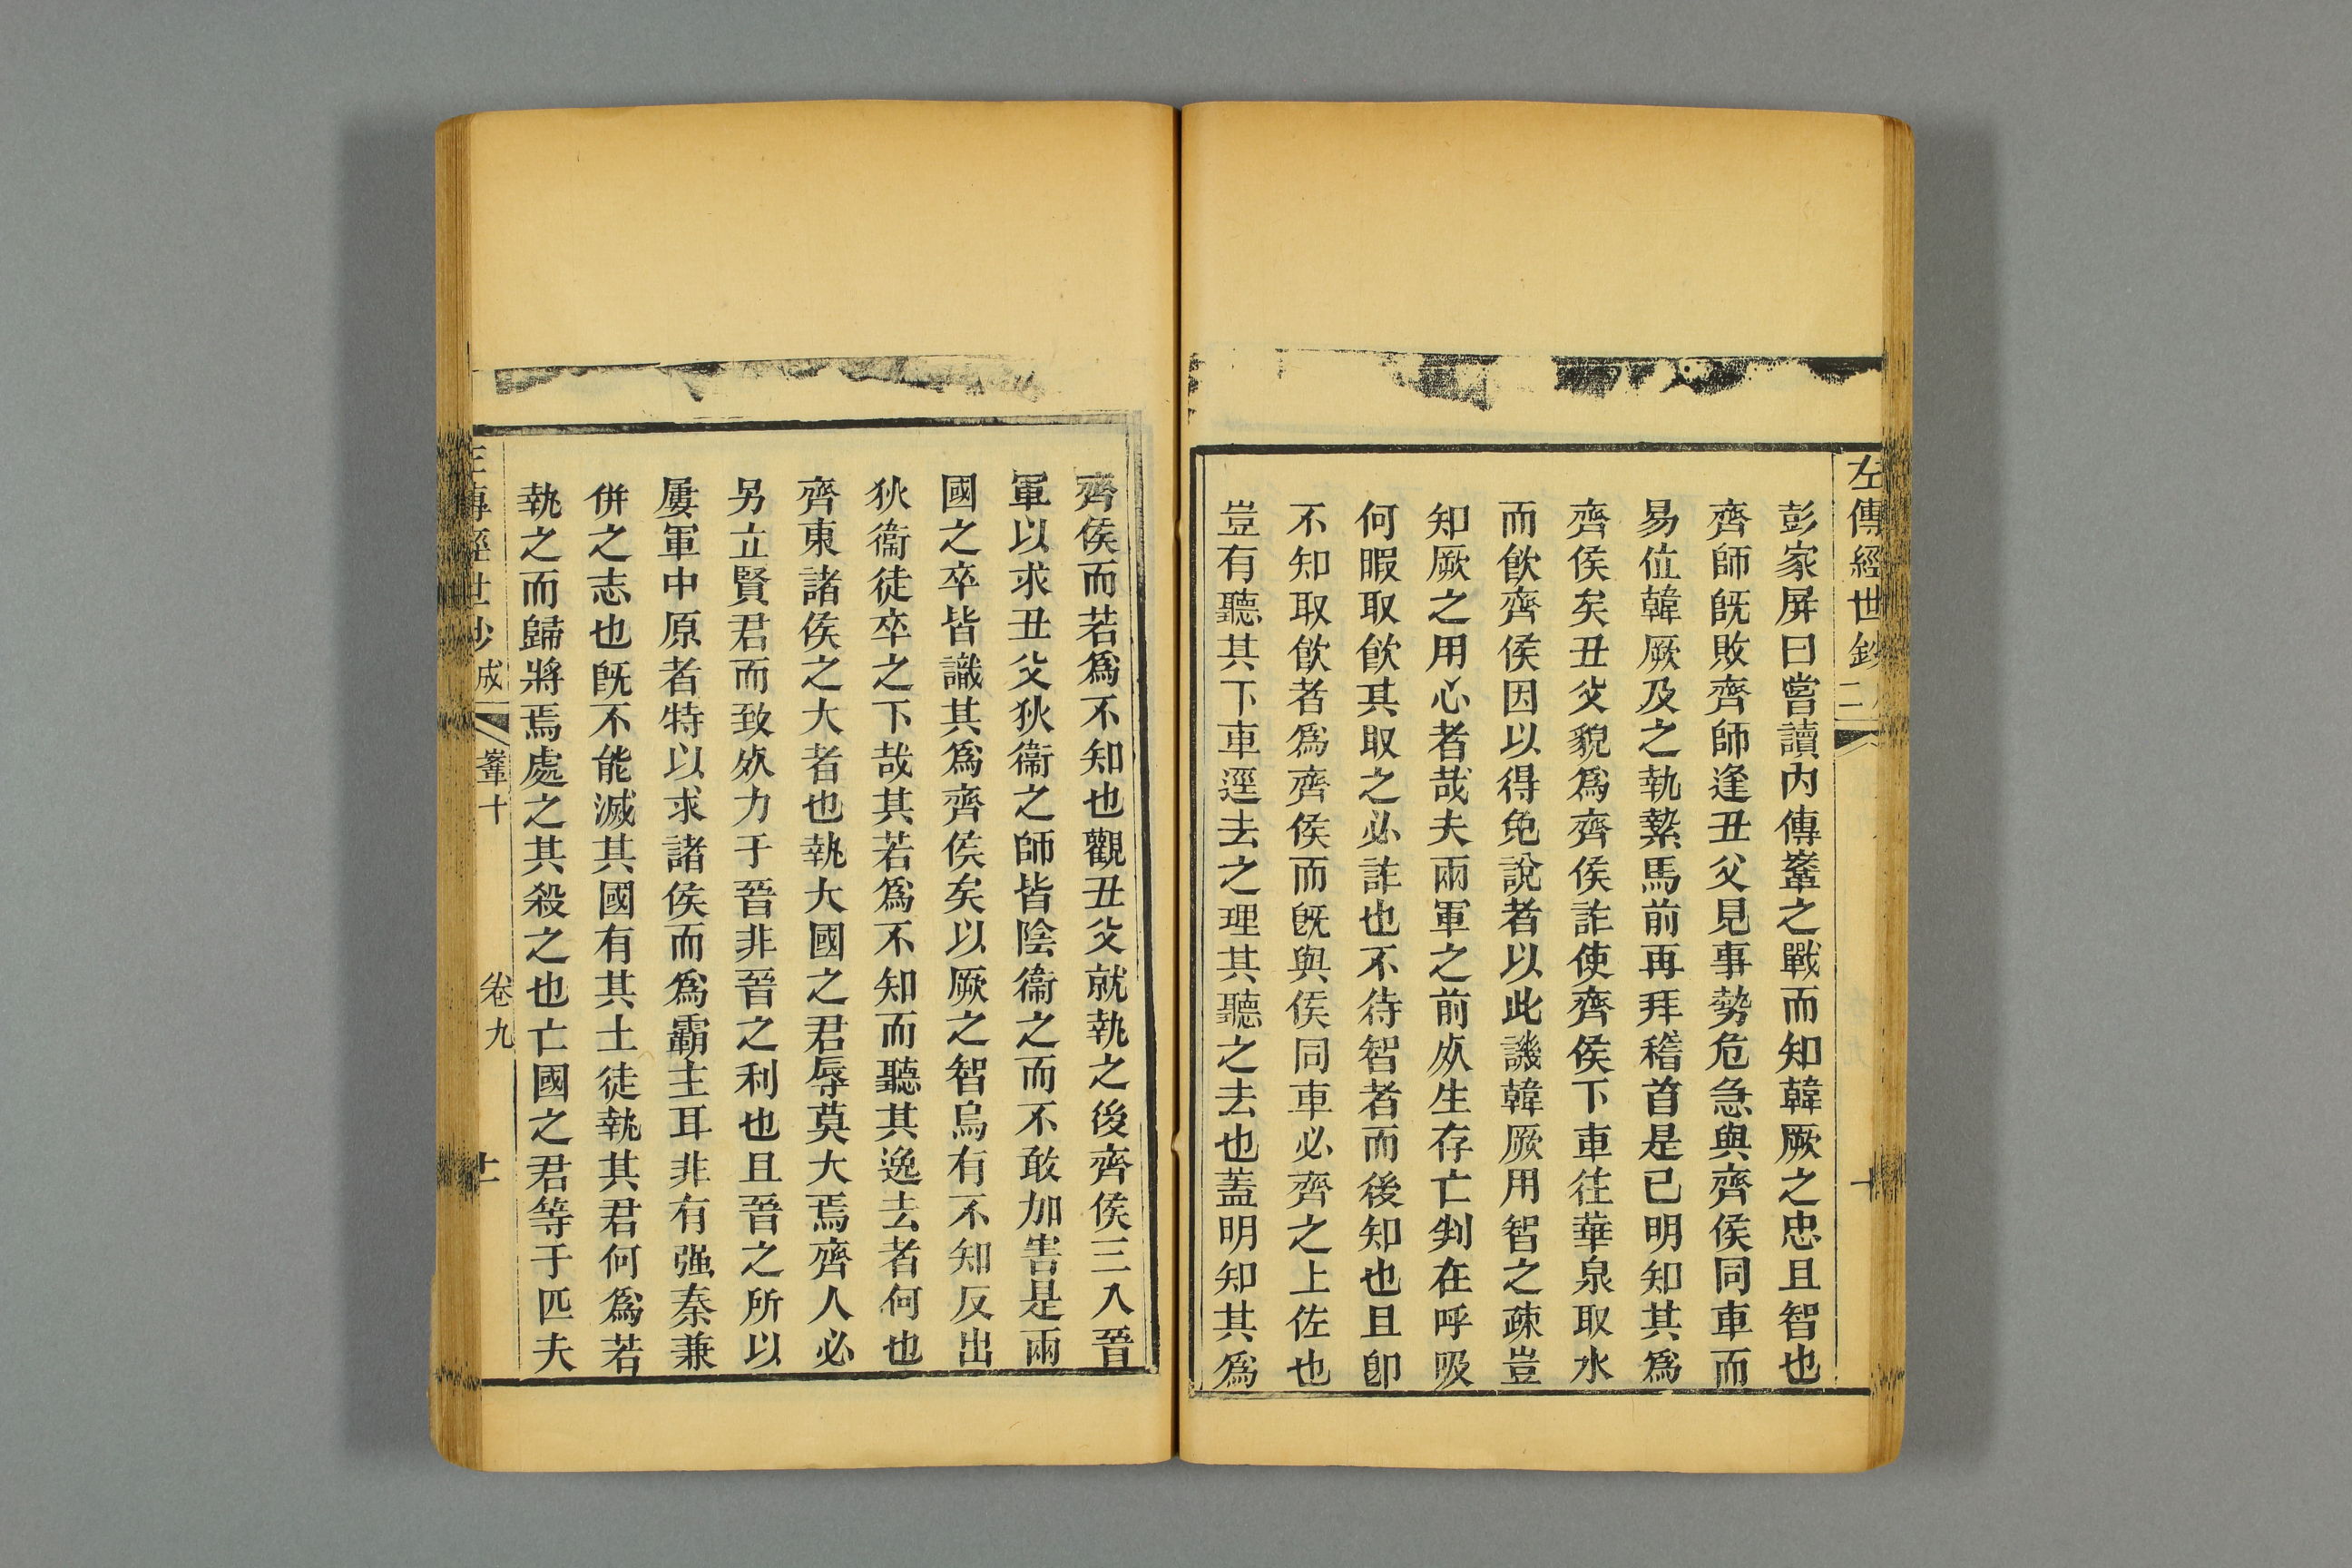 左傳經世鈔
彭家屏曰嘗讀內傳鞌之戰而知韓厥之忠且智也
齊師旣敗齊師逢丑父見事勢危急與齊侯同車而
易位韓厥及之執縶馬前再拜稽首是已明知其爲
齊侯矣丑父貌爲齊侯詐使齊侯下車往華泉取水
而飮齊侯因以得免說者以此譏韓厥用智之疎豈
知厥之用心者哉夫兩軍之前死生存亡判在呼吸
何暇取飮其取之必詐也不待智者而後知也且卽
不知取飮者爲齊侯而旣與侯同車必齊之上佐也
豈有聽其下車逕去之理其聽之去也蓋明知其爲
齊侯而若爲不知也觀丑父就執之後齊侯三入晉
軍以求丑父狄衞之師皆陰衞之而不敢加害是兩
國之卒皆識其爲齊侯矣以厥之智烏有不知反出
狄衞徒卒之下哉其若爲不知而聽其逸去者何也
齊東諸侯之大者也執大國之君辱莫大焉齊人必
另立賢君而致死力于晉非晉之利也且晉之所以
屢軍中原者特以求諸侯而爲霸主耳非有强秦兼
併之志也旣不能滅其國有其土徒執其君何爲若
執之而歸將焉處之其殺之也亡國之君等于匹夫
傳經世 成 鞌十 卷九 十一